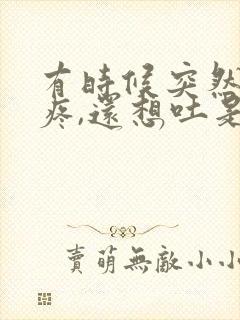 有時候突然
疼,還想吐是
賣萌無敵小小